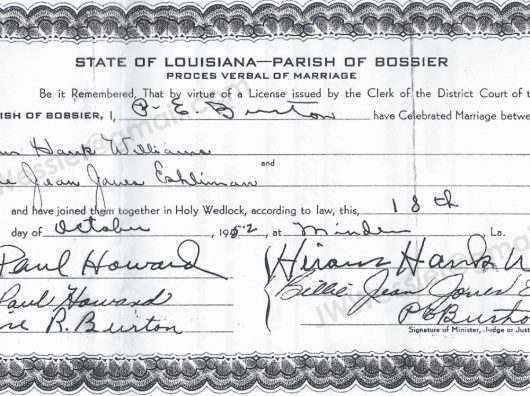 STATE OF LOUISIANA—PARISH OF BOSSIER
PROCES VERBAL OF MARRIAGE
Be it Remembered, That by virtue of a License issued by the Clerk of the District Court of
ISH OF BOSSIER, I, P. E. Burton have Celebrated Marriage betwe
Hank Williams
and
Jean Jones Eshliman
and have joined them together in Holy Wedlock, according to law, this, 18th
day of October, 1952, at Minden, La.
Paul Howard
Hiram Hank W
Paul Howard
Billie Jean Jones E
R. Burton
P E Burto
Signature of Minister, Judge or Just